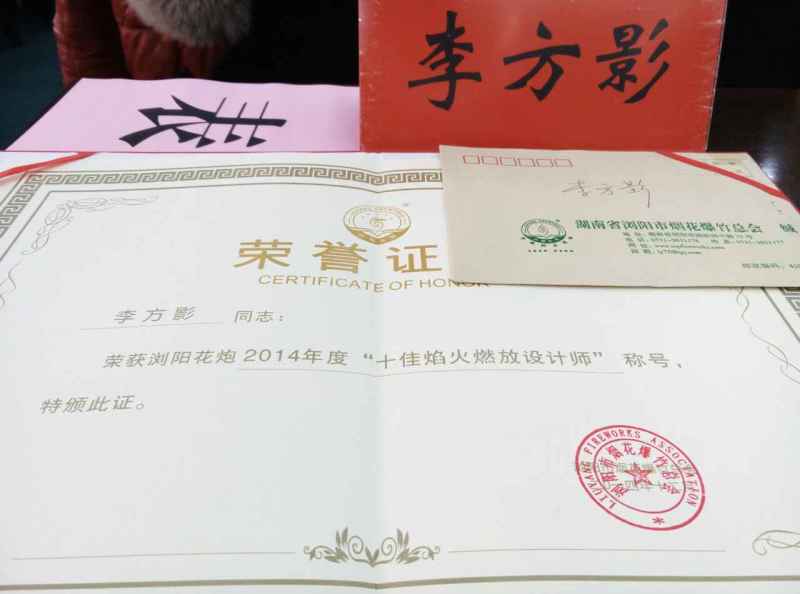 李方影
李方影
湖南省浏阳市烟花爆竹总会
荣誉证
CERTIFICATE OF HONOR
李方影 同志：
荣获浏阳花炮2014年度“十佳焰火燃放设计师”称号，
特颁此证。
LIUYANG FIREWORKS ASSOCIATION
浏阳市烟花爆竹总会